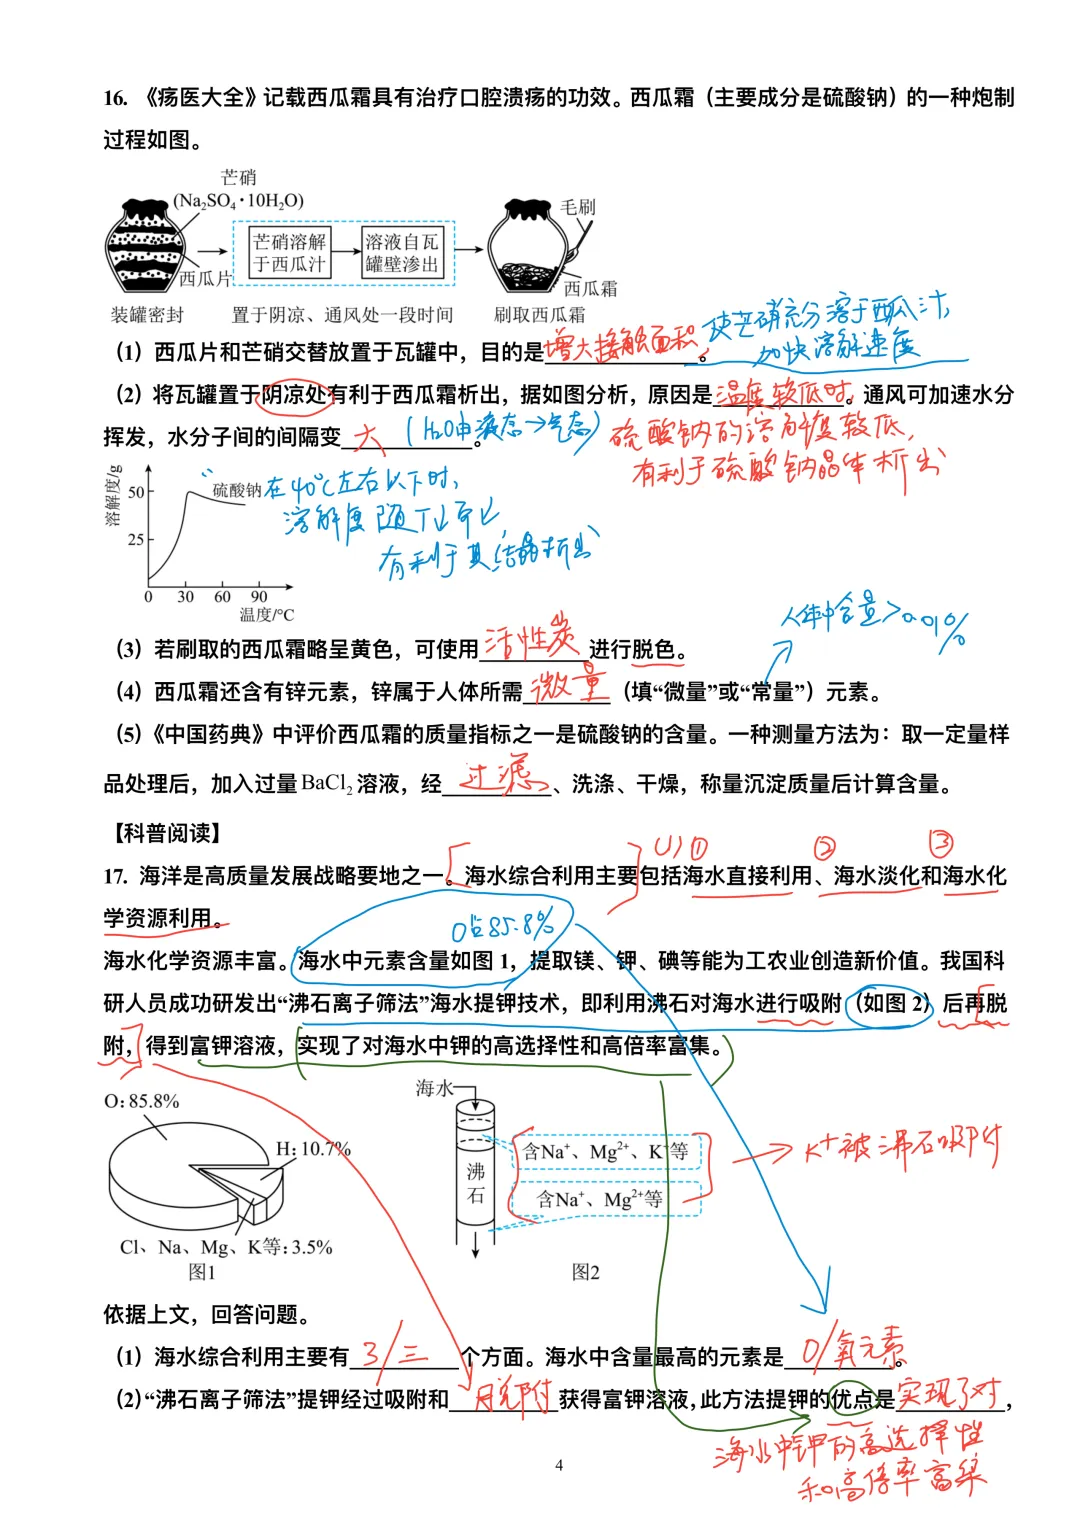 16. 《疡医大全》记载西瓜霜具有治疗口腔溃疡的功效。西瓜霜（主要成分是硫酸钠）的一种炮制
过程如图。
芒硝
(Na₂SO₄·10H₂O)
西瓜片
芒硝溶解
于西瓜汁
溶液自瓦
罐壁渗出
毛刷
西瓜霜
装罐密封
置于阴凉、通风处一段时间
刷取西瓜霜
使芒硝充分溶于西瓜汁,
加快溶解速度
（1）西瓜片和芒硝交替放置于瓦罐中，目的是增大接触面积。
（2）将瓦罐置于阴凉处有利于西瓜霜析出，据如图分析，原因是温度较低时,。通风可加速水分
挥发，水分子间的间隔变大。
(H₂O由液态→气态)
硫酸钠的溶解度较低,
有利于硫酸钠晶体析出
溶解度/g
50
25
硫酸钠
0 30 60 90
温度/°C
在40℃左右以下时,
溶解度随T↓而↓
有利于其结晶析出
人体中含量>0.01%
（3）若刷取的西瓜霜略呈黄色，可使用活性炭进行脱色。
（4）西瓜霜还含有锌元素，锌属于人体所需微量（填“微量”或“常量”）元素。
（5）《中国药典》中评价西瓜霜的质量指标之一是硫酸钠的含量。一种测量方法为：取一定量样
品处理后，加入过量BaCl₂溶液，经过滤、洗涤、干燥，称量沉淀质量后计算含量。
【科普阅读】
(1) ① ② ③
17. 海洋是高质量发展战略要地之一。海水综合利用主要包括海水直接利用、海水淡化和海水化
学资源利用。
O占85.8%
海水化学资源丰富。海水中元素含量如图 1，提取镁、钾、碘等能为工农业创造新价值。我国科
研人员成功研发出“沸石离子筛法”海水提钾技术，即利用沸石对海水进行吸附（如图 2）后再脱
附，得到富钾溶液，实现了对海水中钾的高选择性和高倍率富集。
O：85.8%
H：10.7%
Cl、Na、Mg、K等：3.5%
图1
海水
沸
石
含Na⁺、Mg²⁺、K⁺等
含Na⁺、Mg²⁺等
图2
K⁺被沸石吸附
依据上文，回答问题。
（1）海水综合利用主要有3/三个方面。海水中含量最高的元素是O/氧元素。
（2）“沸石离子筛法”提钾经过吸附和脱附获得富钾溶液，此方法提钾的优点是实现了对，
海水中钾的高选择性
和高倍率富集
4